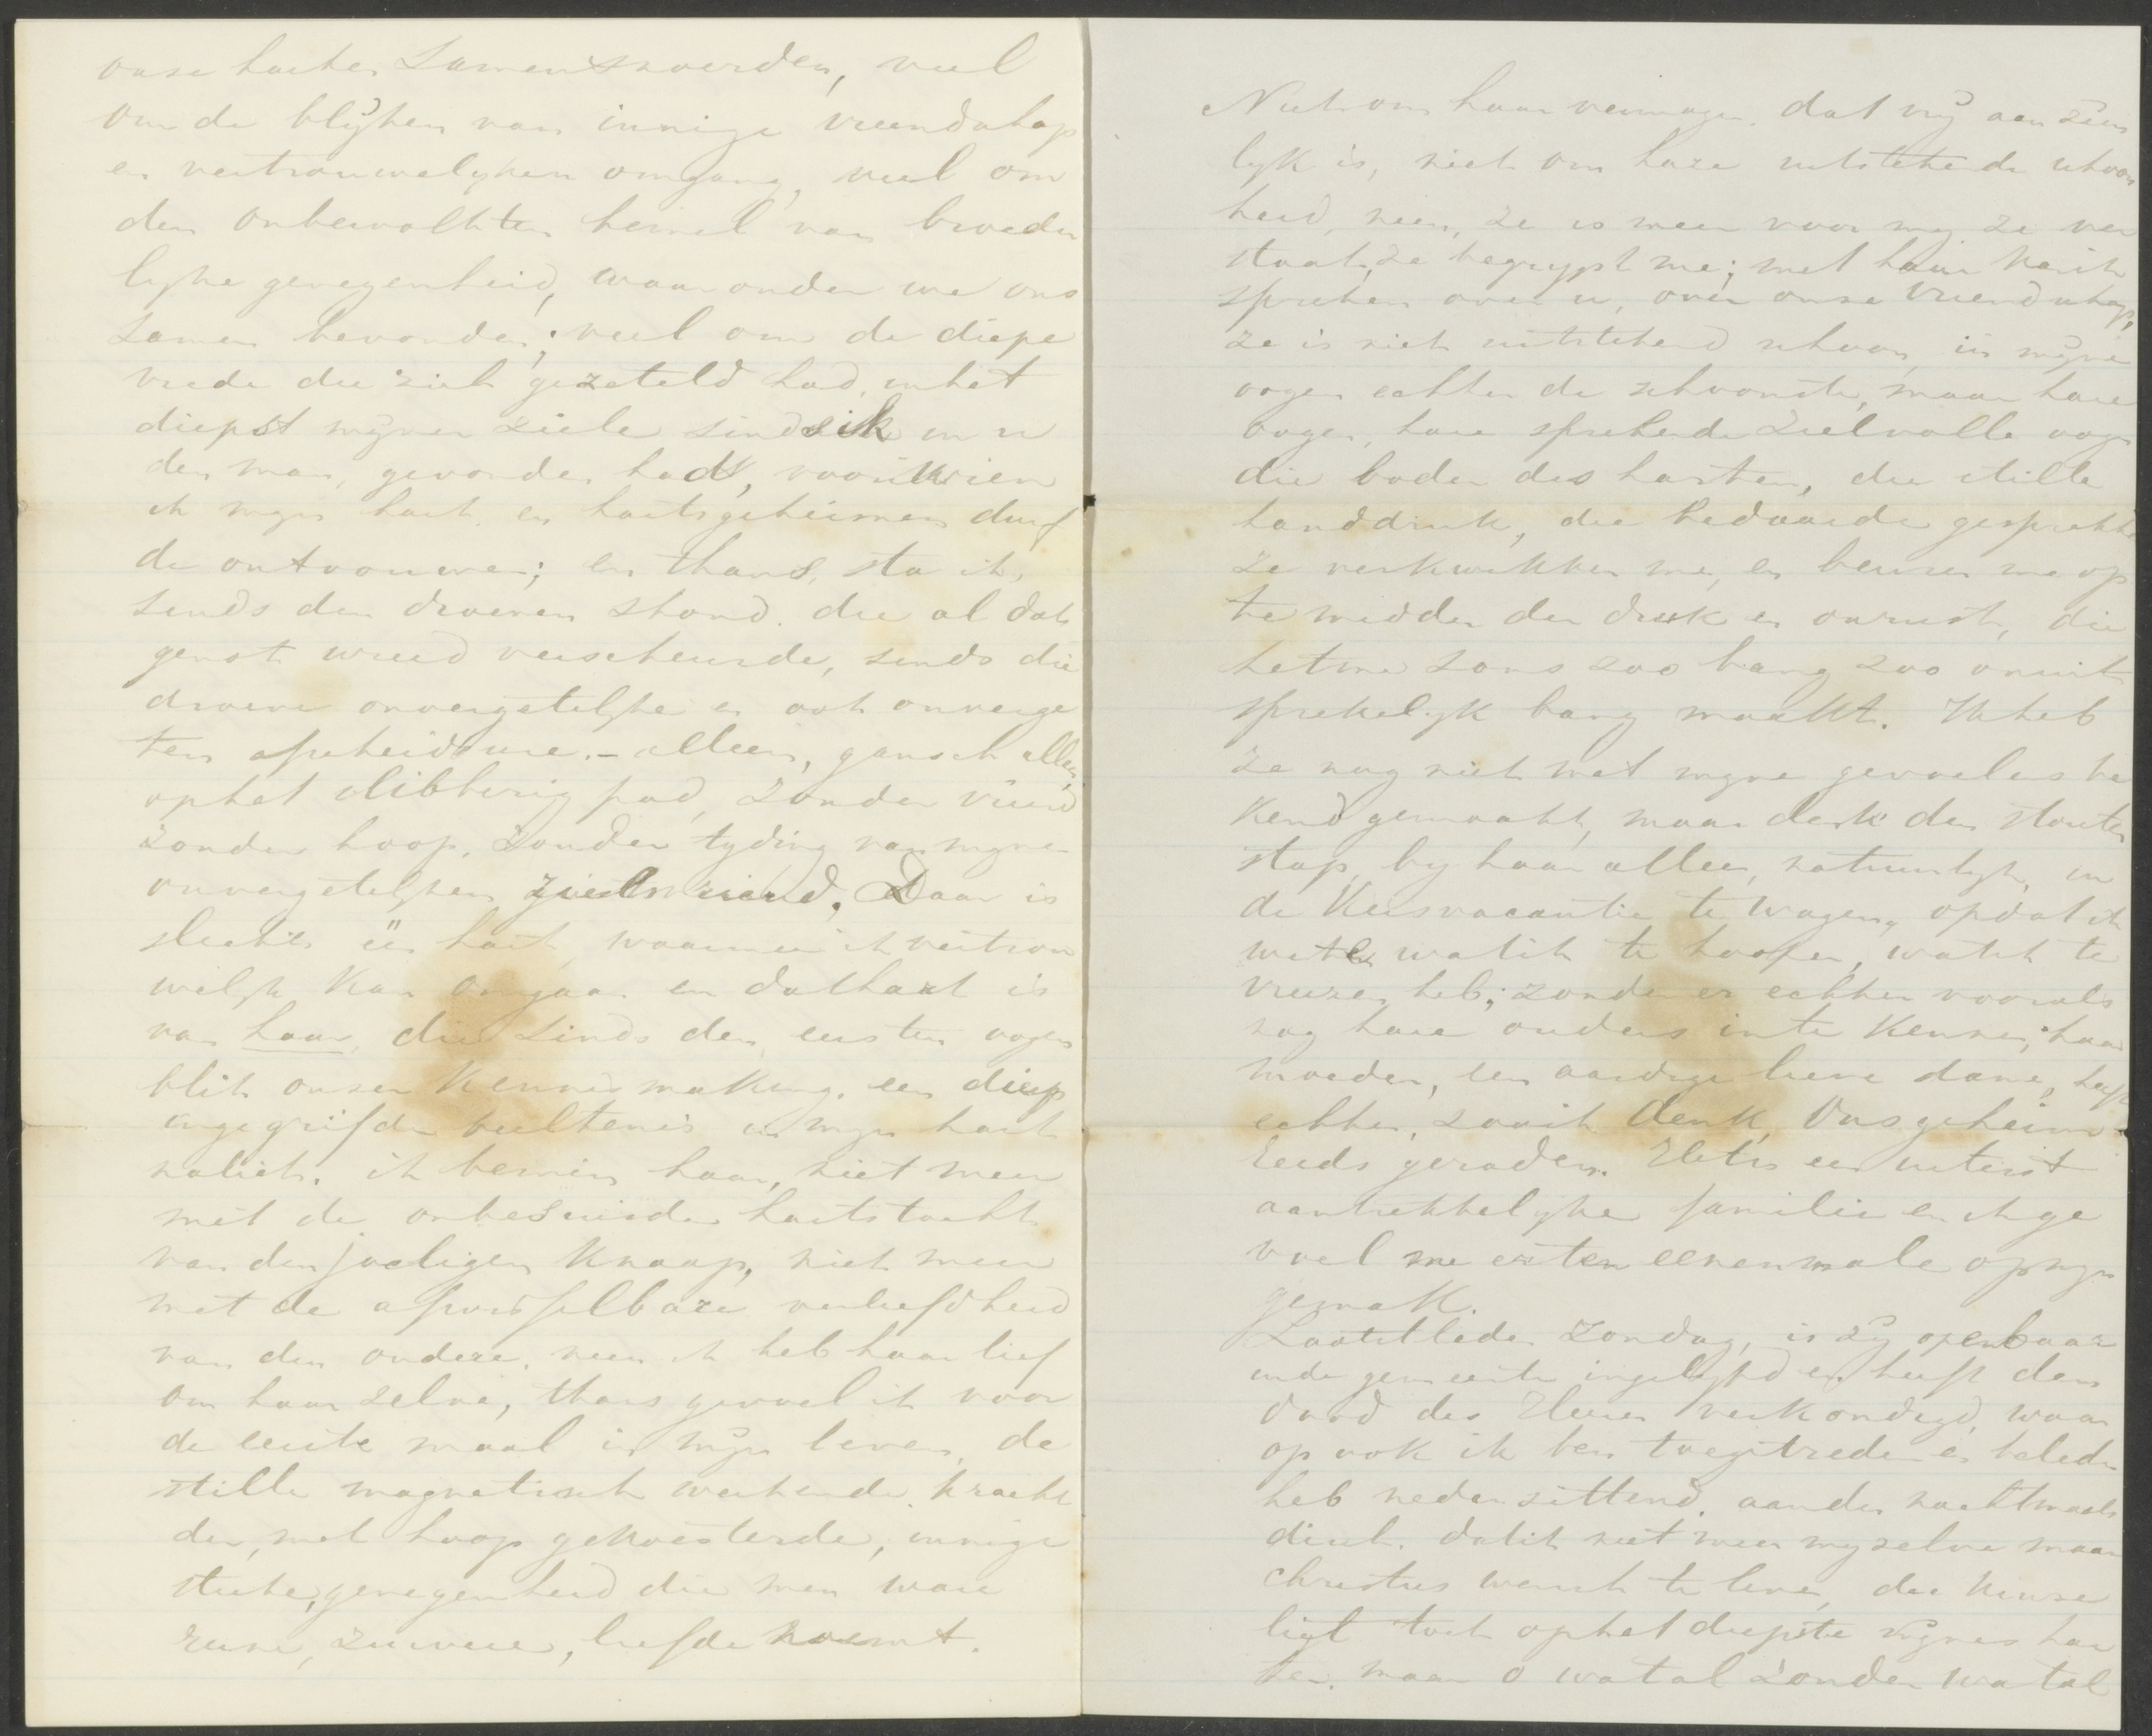 onze harten Samensnoerden, veel
om de blijken van innige vriendschap
en vertrouwelyken omgang, veel om
den onbewolkten hemel van broeder
lyke genegenheid, waaronder we ons
samen bevonden; veel om de diepe
vrede die zich gezeteld had, in het
diepst mijner ziele sinds ik in u
den man, gevonden had, voor wien
ik myn hart en hartsgeheimen durf
de ontvouwen; en thans, sta ik,
sinds den droeven stond. die al dat
genot wreed verscheurde, sinds die
droeve onvergetelyke en ook onverge
ten afscheidsure. - alleen, gansch alleen,
op het slibberig pad, zonder vriend
zonder hoop, zonder tyding van mynen
onvergetelyken zielsvriend. Daar is
slechts één hart, waarmee ik vertrou
welyk kan omgaan en dat hart is
van haar, die sinds den eersten oogen
blik onzer kennismaking. een diep
ingegrifde beeltenis in myn hart
naliet. ik bemin haar, niet meer
met de onbesuisde hartstocht
van den joeligen knaap, niet meer
met de afwisselbare verliefdheid
van den oudere. neen ik heb haar lief
om haar zelve, thans gevoel ik voor
de eerste maal in mijn leven, de
stille magnetisch werkende kracht
der, met hoop gekoesterde, innige
sterke, genegenheid die men ware
reine, zuivere, liefde noemt.
Niet om haar vermogen. dat vrij aanzien
lyk is, niet om hare uitstekende schoon
heid, neen, ze is meer voor my ze ver
staat, ze begrypt me; met haar kan ik
spreken over u, over onze vriendschap,
ze is niet uitstekend schoon, in mijne
oogen echter de schoonste, maar hare
oogen, hare sprekende zielvolle oogen
die boden des harten, die stille
handdruk, die bedaarde gesprekken
ze verkwikken me, en beuren me op
te midden der druk en onrust, die
het me soms zoo bang zoo onuit
sprekelyk bang maakt. Ik heb
ze nog niet met myne gevoelens be
kend gemaakt, maar denk den stouten
stap, by haar alleen, natuurlyk, in
de Kersvacantie te wagen, opdat ik
wete wat ik te hoopen, wat ik te
vreezen heb; zonder er echter voorals
nog hare ouders in te kennen; haar
moeder, een aardige lieve dame, heeft
echter, zoo ik denk, ons geheim
reeds geraden. Het is een uiterst
aantrekkelyke familie en ik ge
voel me er ten eenenmale op myn
gemak.
Laatstleden Zondag, is zij openbaar
in de gemeente ingelyfd en heeft den
dood des Heeren verkondigd, waar
op ook ik ben toegetreden en beleden
heb nederzittend. aan den nachtmaals
disch. dat ik niet meer myzelve maar
Christus wensch te leven, die keuze
ligt toch op het diepste mijnes har
ten. maar o wat al zonden wat al